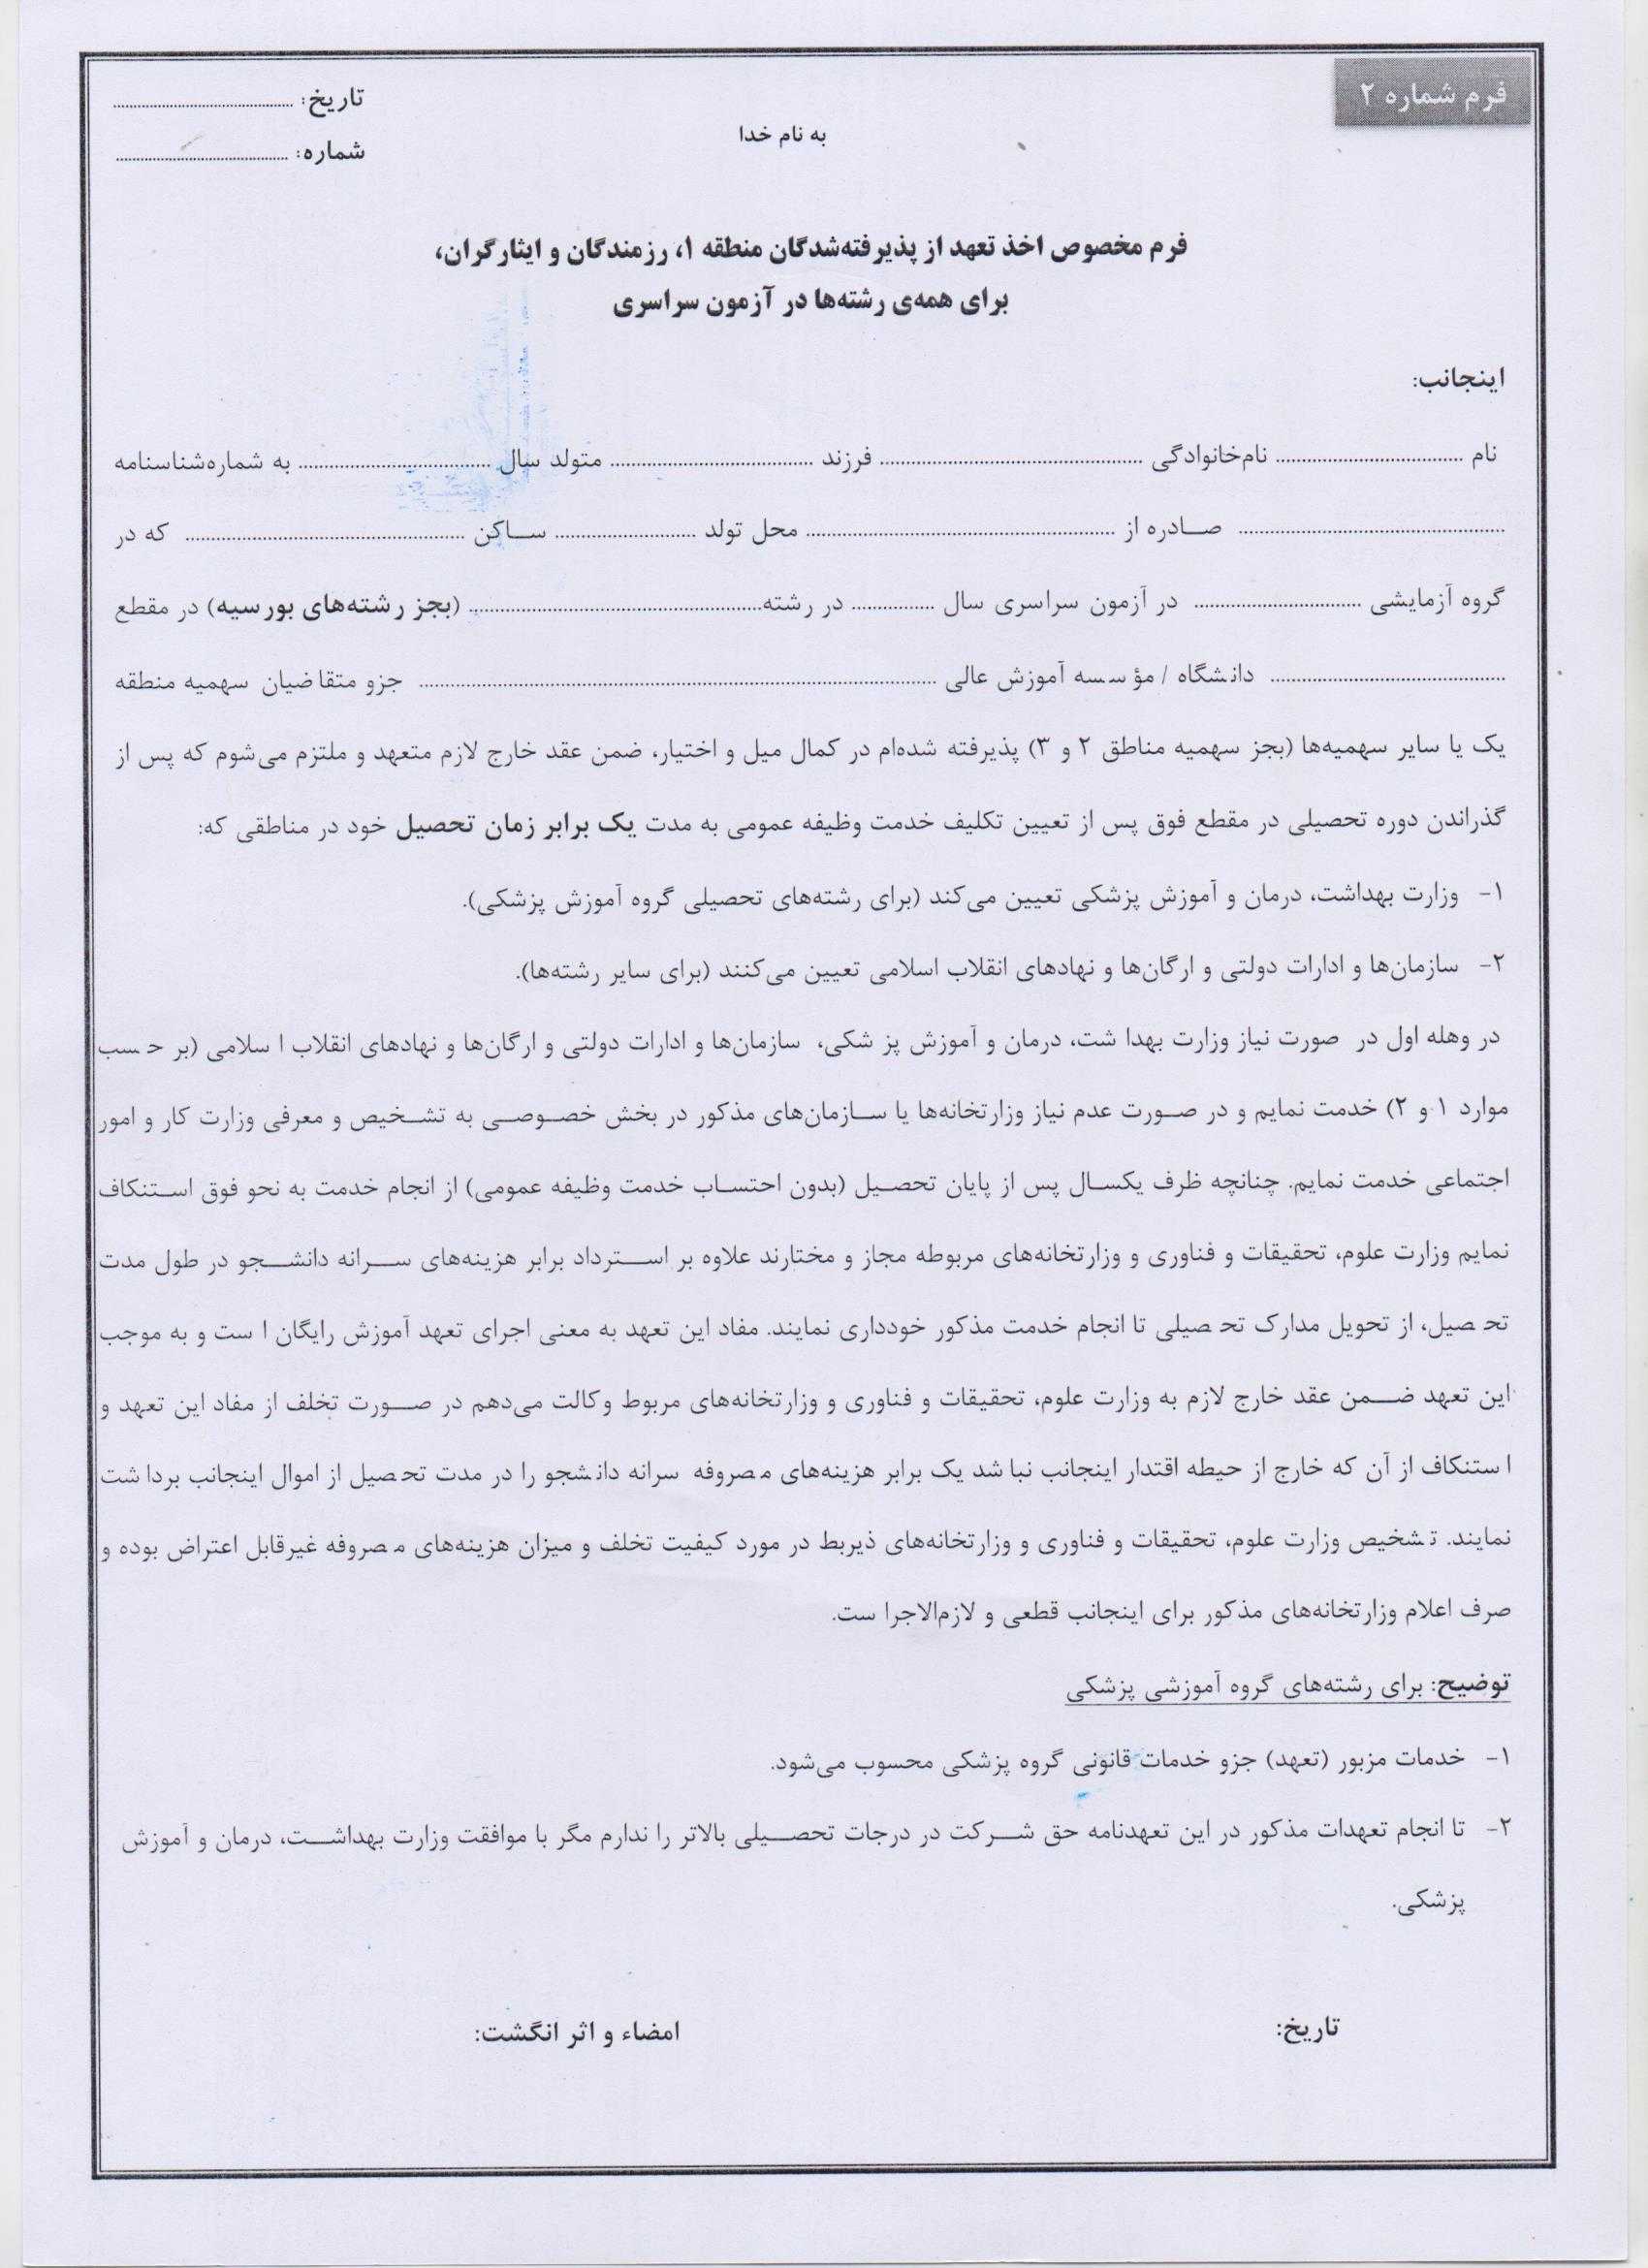 فرم شماره ۲
تاریخ: ........................
به نام خدا
شماره: ........................
فرم مخصوص اخذ تعهد از پذیرفته‌شدگان منطقه ۱، رزمندگان و ایثارگران،
برای همه‌ی رشته‌ها در آزمون سراسری
اینجانب:
نام ........................ نام‌خانوادگی ........................ فرزند ........................ متولد سال ........................ به شماره‌شناسنامه
........................ صادره از ........................ محل تولد ........................ ساکن ........................ که در
گروه آزمایشی ........................ در آزمون سراسری سال ............ در رشته........................ (بجز رشته‌های بورسیه) در مقطع
........................ دانشگاه / مؤسسه آموزش عالی ........................ جزو متقاضیان سهمیه منطقه
یک یا سایر سهمیه‌ها (بجز سهمیه مناطق ۲ و ۳) پذیرفته شده‌ام در کمال میل و اختیار، ضمن عقد خارج لازم متعهد و ملتزم می‌شوم که پس از
گذراندن دوره تحصیلی در مقطع فوق پس از تعیین تکلیف خدمت وظیفه عمومی به مدت یک برابر زمان تحصیل خود در مناطقی که:
۱- وزارت بهداشت، درمان و آموزش پزشکی تعیین می‌کند (برای رشته‌های تحصیلی گروه آموزش پزشکی).
۲- سازمان‌ها و ادارات دولتی و ارگان‌ها و نهادهای انقلاب اسلامی تعیین می‌کنند (برای سایر رشته‌ها).
در وهله اول در صورت نیاز وزارت بهداشت، درمان و آموزش پزشکی، سازمان‌ها و ادارات دولتی و ارگان‌ها و نهادهای انقلاب اسلامی (بر حسب
موارد ۱ و ۲) خدمت نمایم و در صورت عدم نیاز وزارتخانه‌ها یا سازمان‌های مذکور در بخش خصوصی به تشخیص و معرفی وزارت کار و امور
اجتماعی خدمت نمایم. چنانچه ظرف یکسال پس از پایان تحصیل (بدون احتساب خدمت وظیفه عمومی) از انجام خدمت به نحو فوق استنکاف
نمایم وزارت علوم، تحقیقات و فناوری و وزارتخانه‌های مربوطه مجاز و مختارند علاوه بر استرداد برابر هزینه‌های سرانه دانشجو در طول مدت
تحصیل، از تحویل مدارک تحصیلی تا انجام خدمت مذکور خودداری نمایند. مفاد این تعهد به معنی اجرای تعهد آموزش رایگان است و به موجب
این تعهد ضمن عقد خارج لازم به وزارت علوم، تحقیقات و فناوری و وزارتخانه‌های مربوط وکالت می‌دهم در صورت تخلف از مفاد این تعهد و
استنکاف از آن که خارج از حیطه اقتدار اینجانب نباشد یک برابر هزینه‌های مصروفه سرانه دانشجو را در مدت تحصیل از اموال اینجانب برداشت
نمایند. تشخیص وزارت علوم، تحقیقات و فناوری و وزارتخانه‌های ذیربط در مورد کیفیت تخلف و میزان هزینه‌های مصروفه غیرقابل اعتراض بوده و
صرف اعلام وزارتخانه‌های مذکور برای اینجانب قطعی و لازم‌الاجرا ست.
توضیح: برای رشته‌های گروه آموزشی پزشکی
۱- خدمات مزبور (تعهد) جزو خدمات قانونی گروه پزشکی محسوب می‌شود.
۲- تا انجام تعهدات مذکور در این تعهدنامه حق شرکت در درجات تحصیلی بالاتر را ندارم مگر با موافقت وزارت بهداشت، درمان و آموزش
پزشکی.
تاریخ:
امضاء و اثر انگشت: